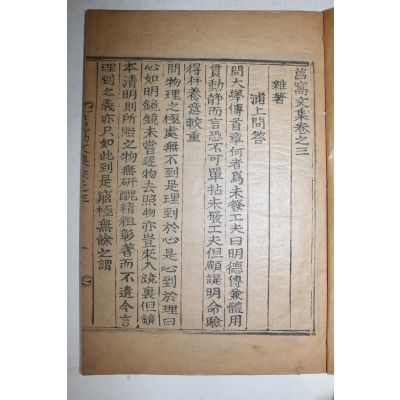 莒窩文集卷之三
雜著
浦上問答
問大學傳首章何者爲未發工夫曰明德傳兼體用
貫動靜而言恐不可單帖未發工夫但顧諟明命驗
得存養意較重
問物理之極處無不到是理到於心是心到於理曰
心如明鏡鏡未嘗逐物去照物亦豈來入鏡裏但鏡
本淸明則所照之物無硏醜精粗彰著而不遺今言
理到之義亦只如此到是窮極無餘之謂